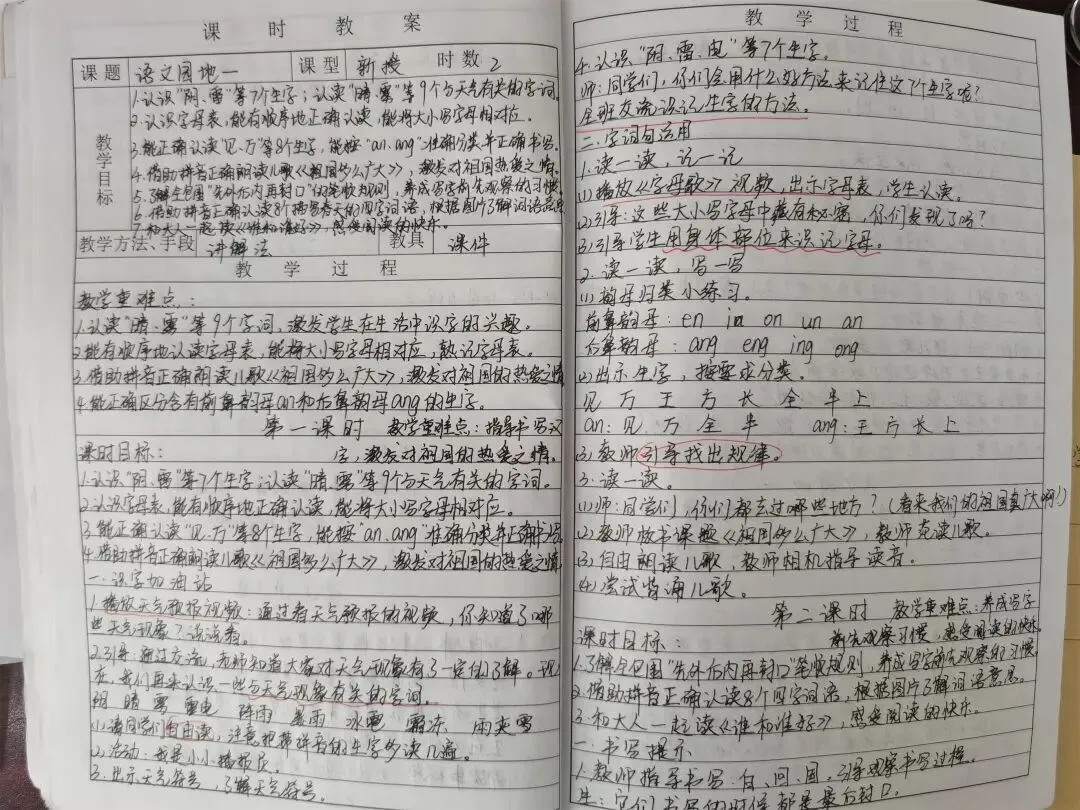 课时教案
课题 语文园地一 课型 新授 时数 2
教学目标
1.认识“阴、雷”等7个生字;认读“晴、雾”等9个与天气有关的字词。
2.认识字母表,能有顺序地正确认读,能将大小写字母相对应。
3.能正确认读“见、万”等8个生字,能按“an、ang”准确分类并正确书写。
4.借助拼音正确朗读儿歌《祖国多么广大》,激发对祖国热爱之情。
5.了解全包围“先外后内再封口”的笔顺规则,养成写字前先观察的习惯。
6.借助拼音正确认读8个描写春天的四字词语,根据图片了解词语意思。
7.和大人一起读《谁和谁好》,感受阅读的快乐。
教学方法、手段 讲解法 教具 课件
教学过程
教学重难点:
1.认读“晴、雾”等9个字词,激发学生在生活中识字的兴趣。
2.能有顺序地认读字母表,能将大小写字母相对应,熟识字母表。
3.借助拼音正确朗读儿歌《祖国多么广大》,激发对祖国的热爱之情
4.能正确区分含有前鼻韵母an和后鼻韵母ang的生字。
第一课时 教学重难点:指导书写汉
课时目标: 字,激发对祖国的热爱之情。
1.认识“阴、雷”等7个生字;认读“晴、雾”等9个与天气有关的字词。
2.认识字母表,能有顺序地正确认读,能将大小写字母相对应。
3.能正确认读“见、万”等8个生字,能按“an、ang”准确分类并正确书写。
4.借助拼音正确朗读儿歌《祖国多么广大》,激发对祖国的热爱之情
一.识字加油站
1.播放天气预报视频:通过看天气预报的视频,你知道了哪
些天气现象?说说看。
2.引导:通过交流,老师知道大家对天气现象有了一定的了解。现
在,我们再来认识一些与天气现象有关的字词。
阴 晴 雾 雷电 阵雨 暴雨 冰雹 霜冻 雨夹雪
(1)请同学们自由读,注意把带拼音的生字多读几遍。
(2)活动:我是小小播报员。
3.出示天气符号,了解天气符号。
教学过程
4.认识“阴、雷、电”等7个生字。
师:同学们,你们会用什么好方法来记住这7个生字呢?
全班交流识记生字的方法。
二.字词句运用
1.读一读,记一记
(1)播放《字母歌》视频,出示字母表,学生认读。
(2)引导:这些大小写字母中藏有秘密,你们发现了吗?
(3)引导学生用身体部位来识记字母。
2.读一读,写一写
(1)韵母归类小练习。
前鼻韵母:en in on un an
后鼻韵母:ang eng ing ong
(2)出示生字,按要求分类。
见 万 王 方 长 全 半 上
an:见 万 全 半 ang:王 方 长 上
(3)教师引导找出规律。
3.读一读。
(1)师:同学们,你们都去过哪些地方?(看来我们的祖国真广大啊!)
(2)教师板书课题《祖国多么广大》,教师范读儿歌。
(3)自由朗读儿歌,教师相机指导读音。
(4)尝试背诵儿歌。
第二课时 教学重难点:养成写字
课时目标: 前先观察习惯,感受阅读的快乐。
1.了解全包围“先外后内再封口”笔顺规则,养成写字前先观察的习惯。
2.借助拼音正确认读8个四字词语,根据图片了解词语意思。
3.和大人一起读《谁和谁好》,感受阅读的快乐。
一.书写提示
1.教师指导书写:自、回、国,引导观察书写过程。
生:它们书写的时候都是最后封口。